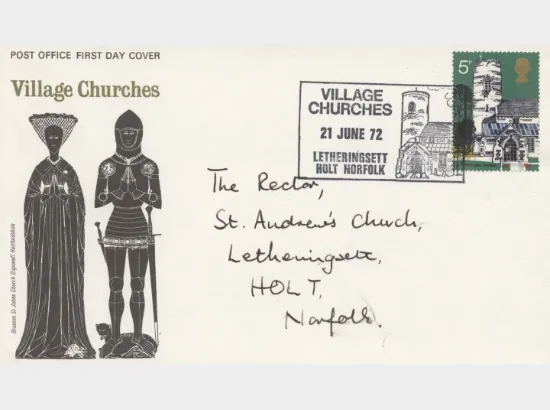 POST OFFICE FIRST DAY COVER
Village Churches
VILLAGE
CHURCHES
21 JUNE 72
LETHERINGSETT
HOLT NORFOLK
5p
The Rector,
St. Andrew's Church,
Letheringsett,
HOLT,
Norfolk.
Brasses St Johns Church Digswell Hertfordshire